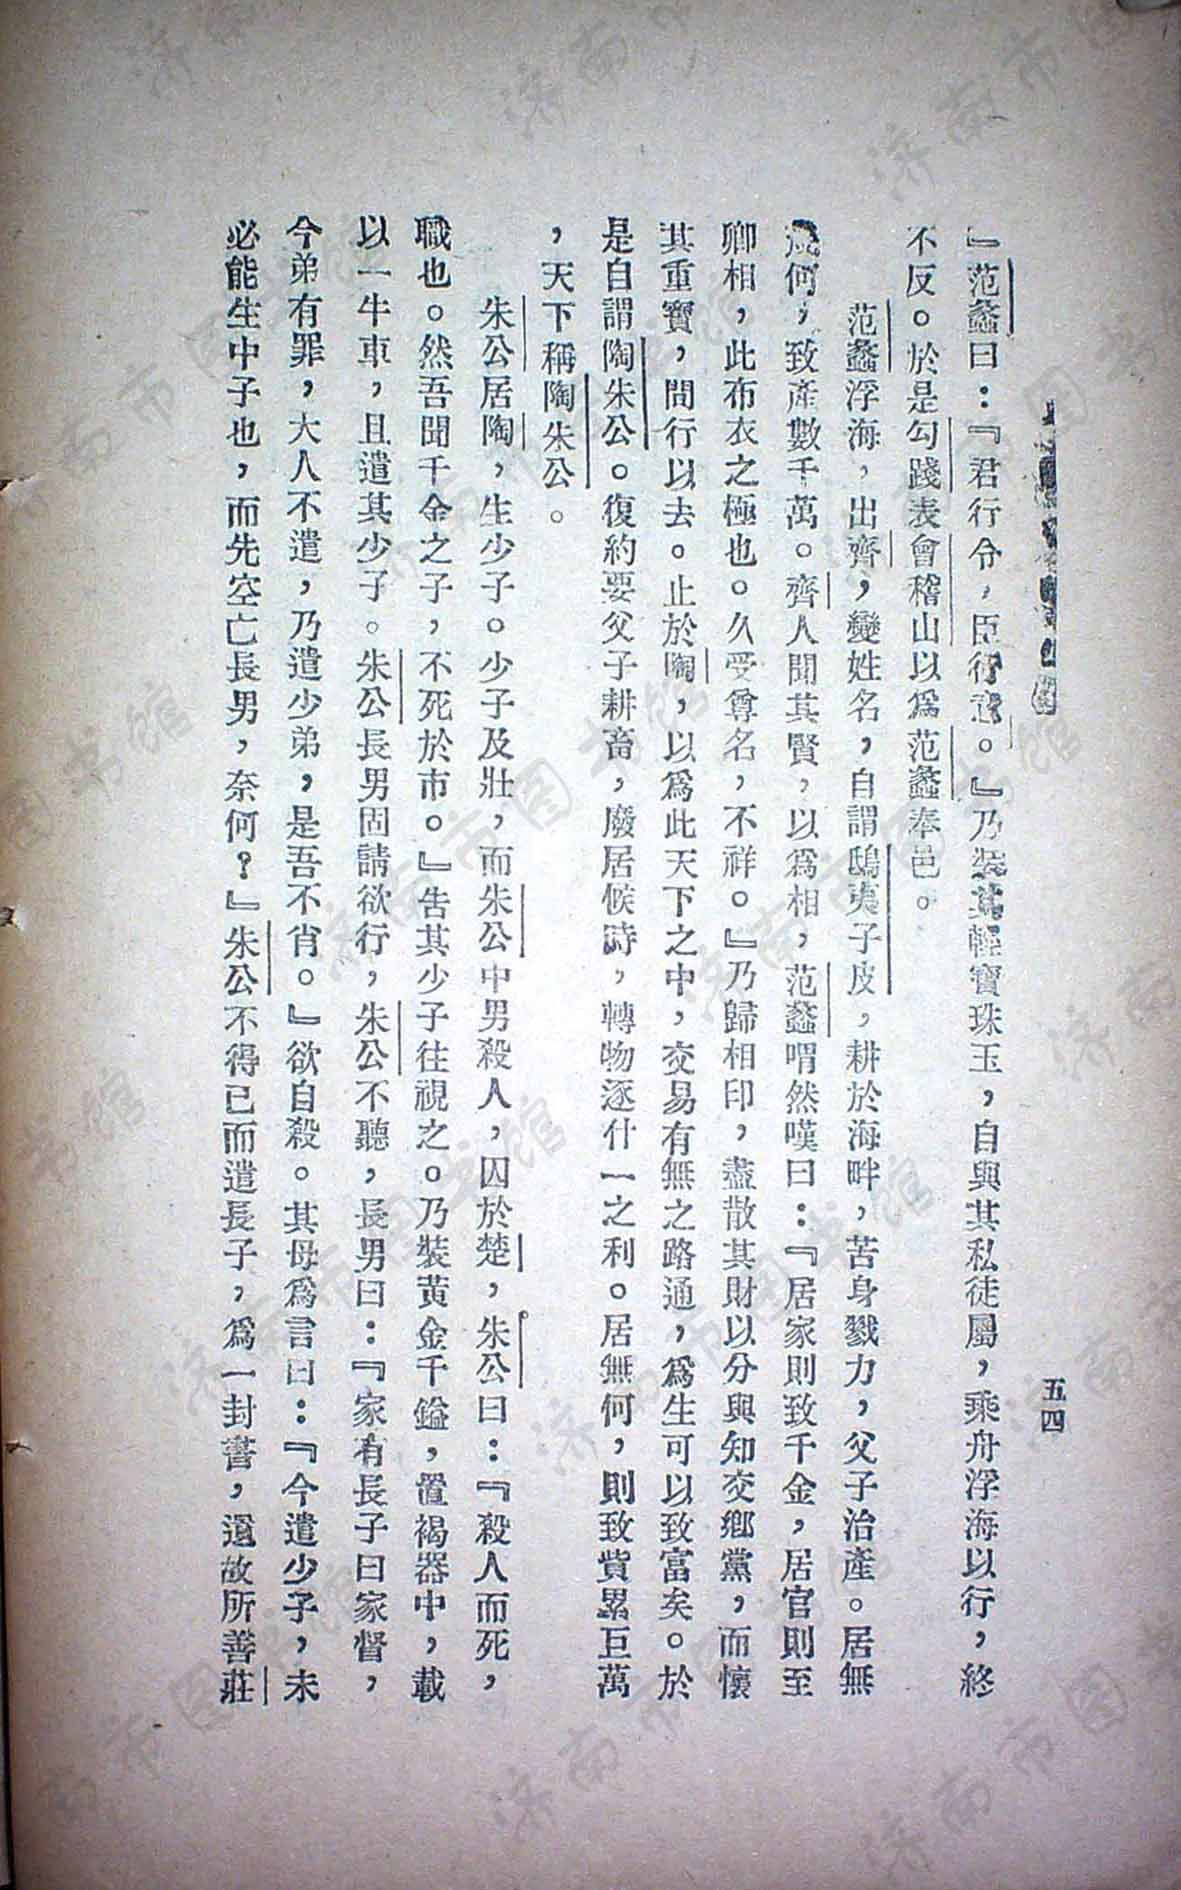 五四
』范蠡曰：『君行令，臣行意。』乃裝其輕寶珠玉，自與其私徒屬，乘舟浮海以行，終
不反。於是勾踐表會稽山以爲范蠡奉邑。
范蠡浮海，出齊，變姓名，自謂鴟夷子皮，耕於海畔，苦身戮力，父子治產。居無
幾何，致產數千萬。齊人聞其賢，以爲相，范蠡喟然嘆曰：『居家則致千金，居官則至
卿相，此布衣之極也。久受尊名，不祥。』乃歸相印，盡散其財以分與知交鄉黨，而懷
其重寶，間行以去。止於陶，以爲此天下之中，交易有無之路通，爲生可以致富矣。於
是自謂陶朱公。復約要父子耕畜，廢居候時，轉物逐什一之利。居無何，則致貲累巨萬
，天下稱陶朱公。
朱公居陶，生少子。少子及壯，而朱公中男殺人，囚於楚，朱公曰：『殺人而死，
職也。然吾聞千金之子，不死於市。』吿其少子往視之。乃裝黃金千鎰，置褐器中，載
以一牛車，且遣其少子。朱公長男固請欲行，朱公不聽，長男曰：『家有長子曰家督，
今弟有罪，大人不遣，乃遣少弟，是吾不肖。』欲自殺。其母爲言曰：『今遣少子，未
必能生中子也，而先空亡長男，奈何？』朱公不得已而遣長子，爲一封書，遺故所善莊
济南市图书馆